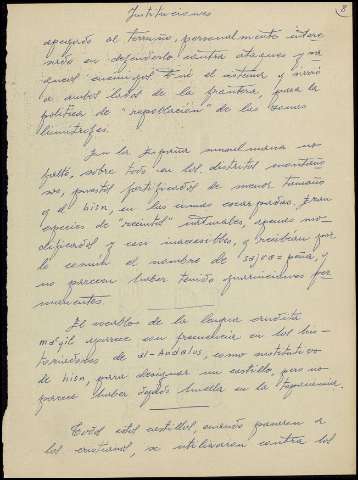 Instituciones
8
apegado al terruño, personalmente intere
sado en defenderlo contra ataques y
enemigos el sistema, y sirvió
a ambos lados de la frontera, para la
política de "repoblación" de las zonas
limítrofes.
En la España musulmana no
faltó, sobre todo en los distritos montaño
sos, puestos fortificados de menor tamaño
q. el hisn, en las cimas escarpadas. Eran
especies de "recintos" naturales, apenas mo-
dificados y casi inaccesibles, y recibían por
lo común el nombre de "sajra = peña, y
no parecen haber tenido guarniciones per
manentes.
El vocablo de la lengua erudita
ma'qil aparece con frecuencia en los his-
toriadores de al-Andalus, como sustitutivo
de hisn, para designar un castillo, pero no
parece haber dejado huella en la toponimia.
Todos estos castillos, cuando pasaron a
los cristianos, se utilizaron contra los